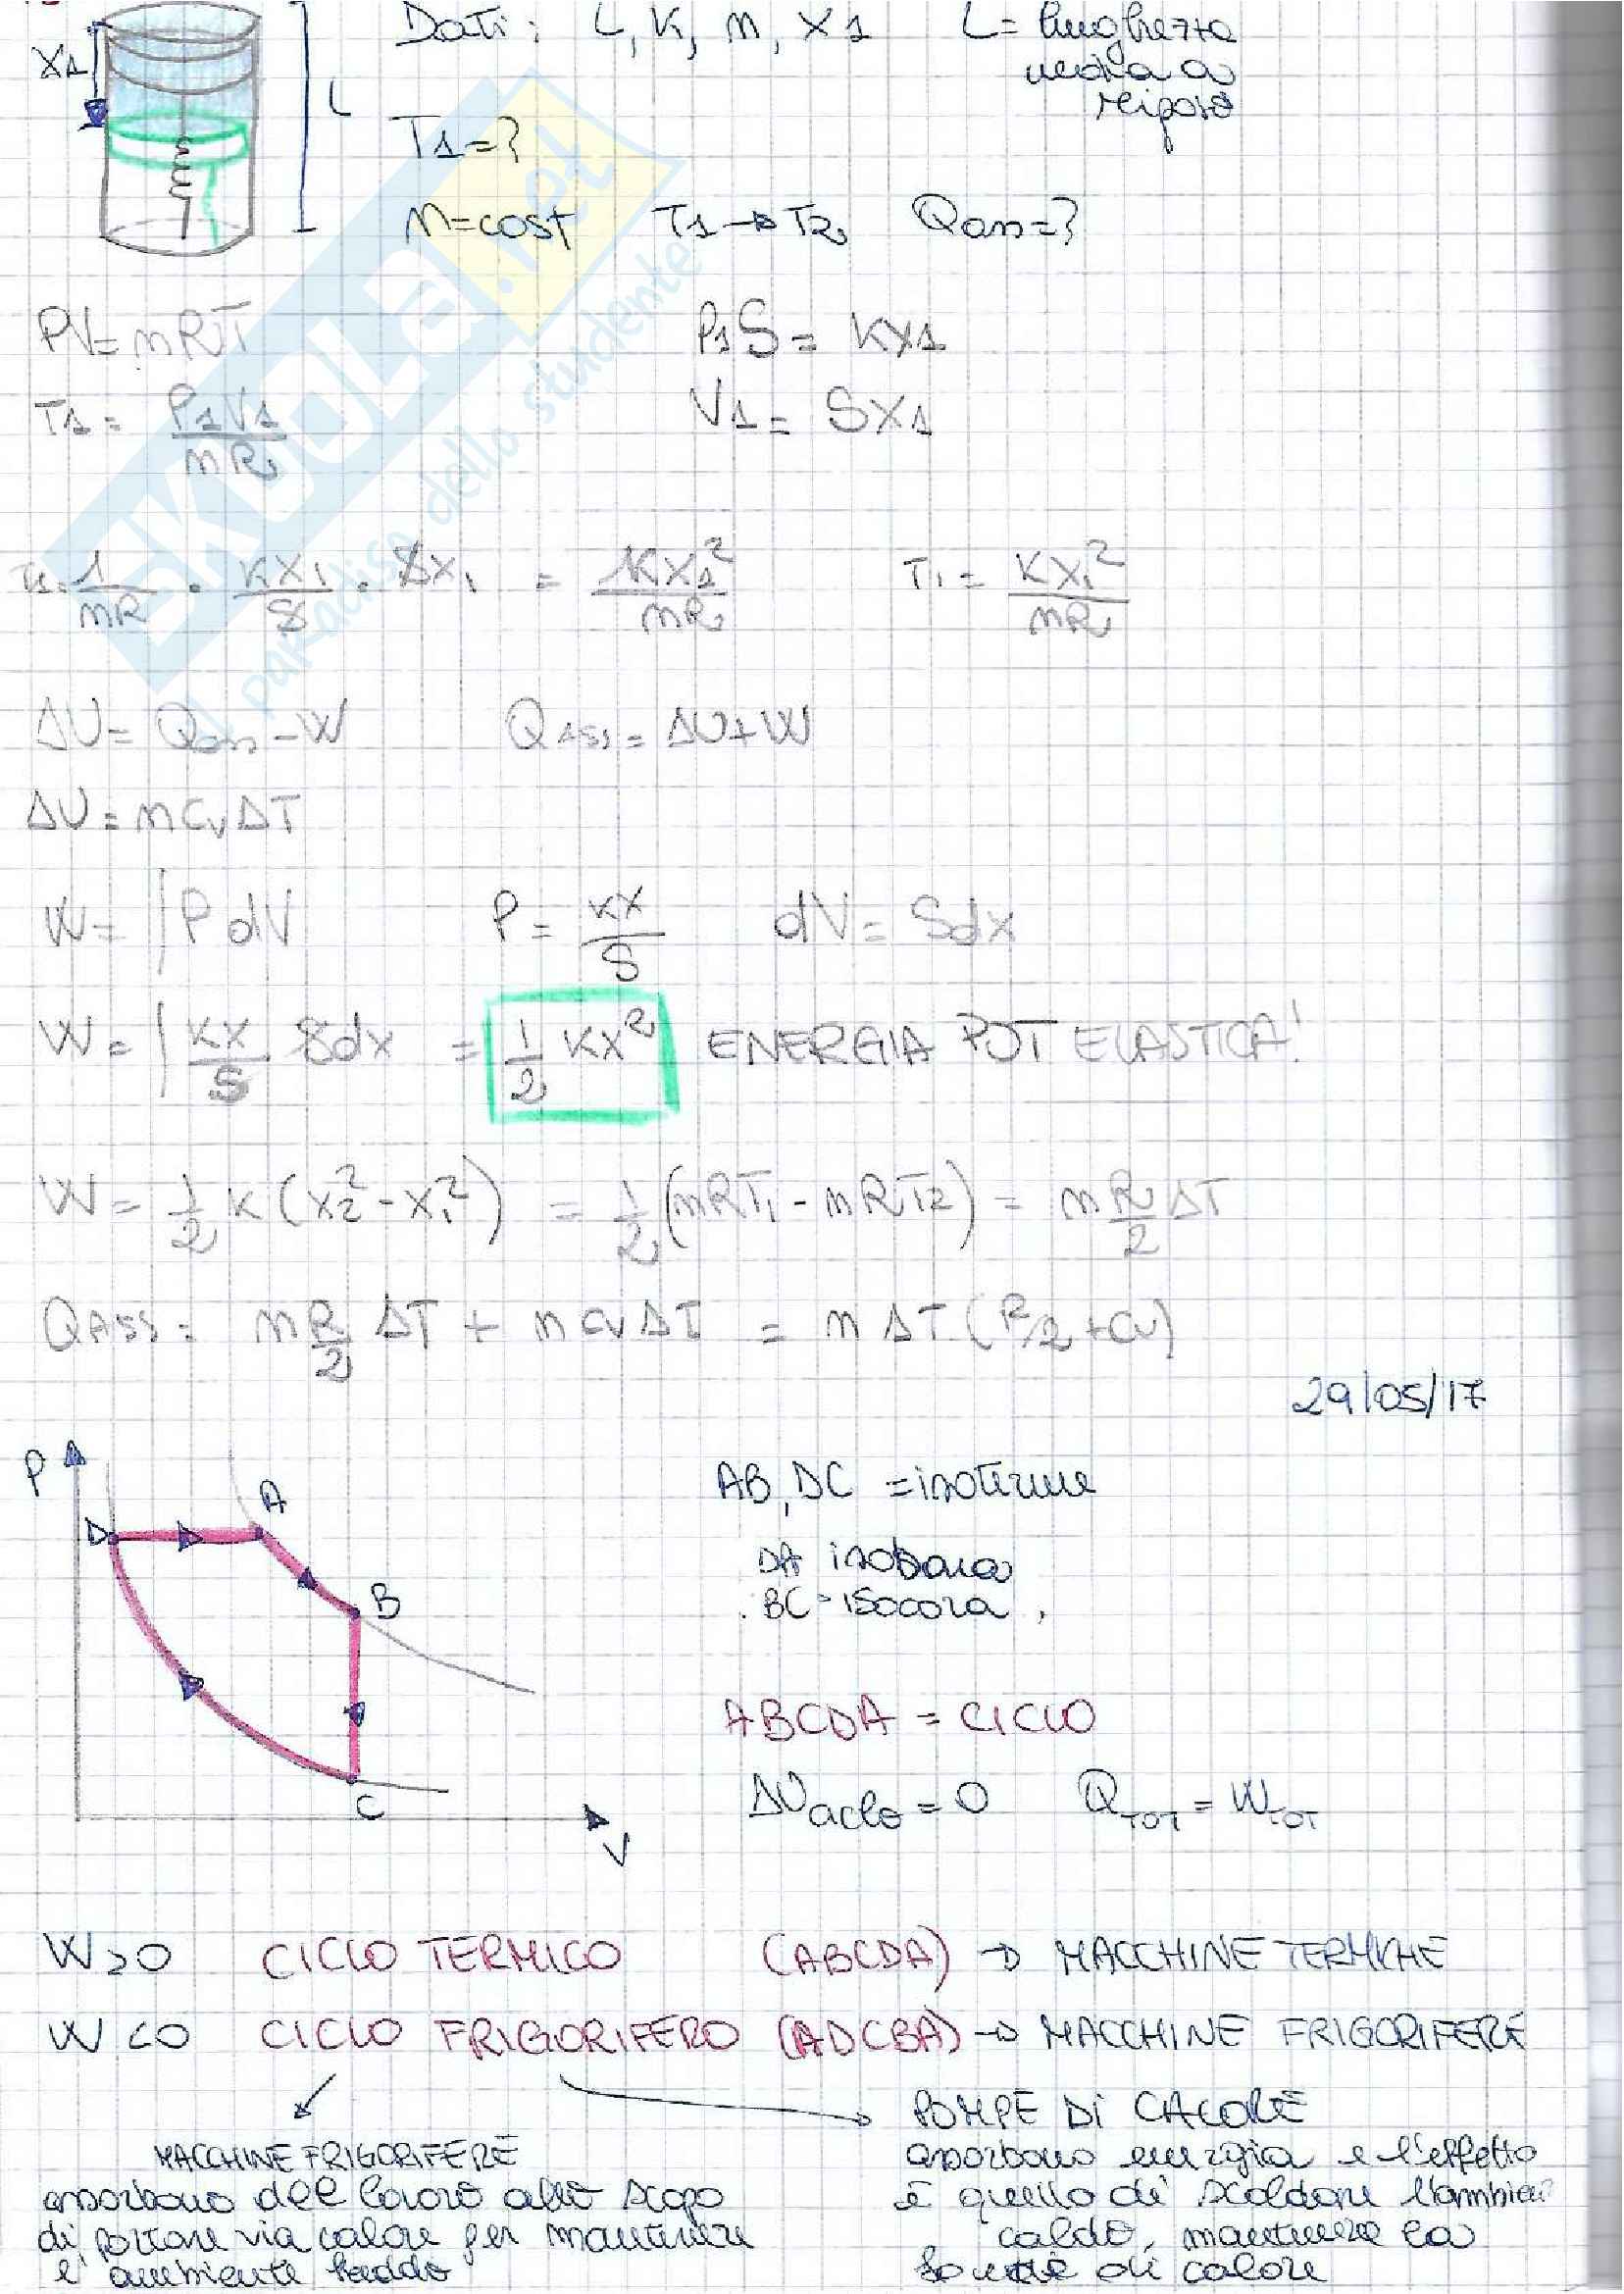 X1
L
Dati: L, K, n, X1 L = lunghezza
molla a
riposo
T1=?
n=cost T1→T2 Qass=?
PV=nRT P1S = KX1
T1 = P1V1/nR V1 = SX1
T1 = 1/nR · KX1/S · SX1 = KX1²/nR T1 = KX1²/nR
ΔU = Qass - W QASS = ΔU+W
ΔU = nCvΔT
W = ∫PdV P = KX/S dV = Sdx
W = ∫ KX/S Sdx = 1/2 KX² ENERGIA POT ELASTICA!
W = 1/2 K (X2² - X1²) = 1/2 (nRT1 - nRT2) = nR/2 ΔT
QASS = nR/2 ΔT + nCvΔT = nΔT (R/2 + Cv)
29/05/17
P
D
A
B
C
V
AB, DC = isoterme
DA isobara
BC = isocora
ABCDA = CICLO
ΔUciclo = 0 QTOT = WTOT
W>0 CICLO TERMICO (ABCDA) → MACCHINE TERMICHE
W<0 CICLO FRIGORIFERO (ADCBA) → MACCHINE FRIGORIFERE
MACCHINE FRIGORIFERE
assorbono del lavoro allo scopo
di portare via calore per mantenere
l'ambiente freddo
POMPE DI CALORE
assorbono energia e l'effetto
è quello di scaldare l'ambien
caldo, mantenere la
di calore
SKUOLA.net
il paradiso dello studente